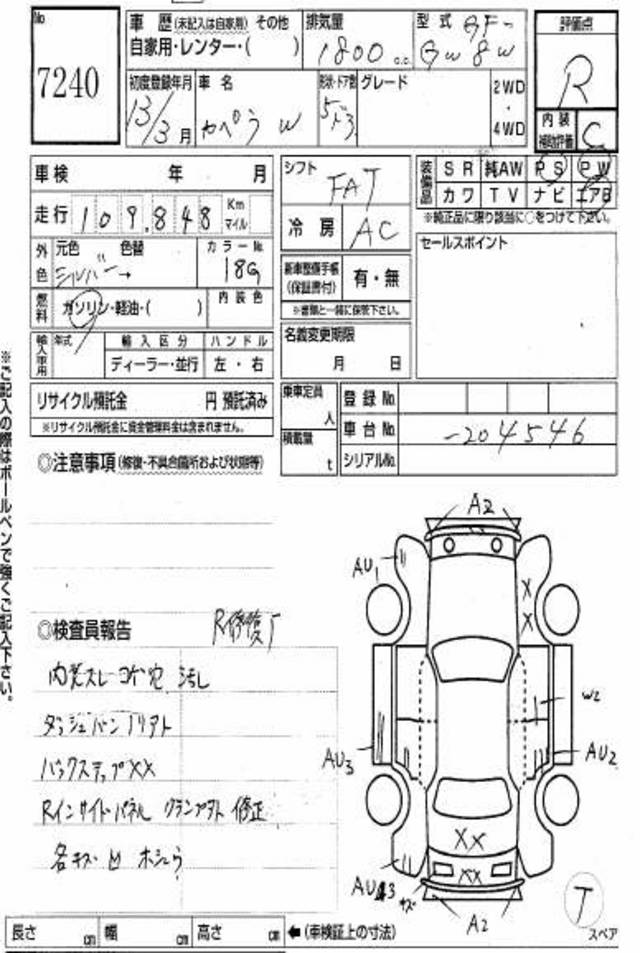 No
7240
車 歴 (未記入は自家用) その他
自家用・レンター・( )
排気量
1800 c.c.
型 式 GF-
GW8W
評価点
R
内装
補助評価
C
初度登録年月
13/3 月
車 名
カペラ W
形状・ドア数
5ドア
グレード
2WD
・
4WD
車検 年 月
走行 109,848 Km
マイル
外色
元色 色替
シルバー →
カラーNo.
18G
燃料
ガソリン・軽油・( )
内装色
輸入車用
年式
輸入区分
ディーラー・並行
ハンドル
左・右
シフト
FAT
冷 房
AC
新車整備手帳
(保証書付)
有・無
※書類と一緒に保管下さい。
名義変更期限
月 日
装備品
SR 純AW PS PW
カワ TV ナビ エアB
※純正品に限り該当に○をつけて下さい。
セールスポイント
リサイクル預託金 円 預託済み
※リサイクル預託金に資金管理料金は含まれません。
乗車定員
人
積載量
t
登録No.
車台No.
-204546
シリアルNo.
◎注意事項 (修復・不具合箇所および状態等)
※ご記入の際はボールペンで強くご記入下さい。
◎検査員報告
R修復歴
内装スレ コゲ穴 汚れ
ダッシュバン ノリアト
バックステップXX
Rインサイドパネル クランプアト 修正
各キズ 凹
A2
AU1
X
X
W2
AU3
AU2
XX
XX
キズ
A2
T
スペア
長さ cm 幅 cm 高さ cm ←(車検証上の寸法)